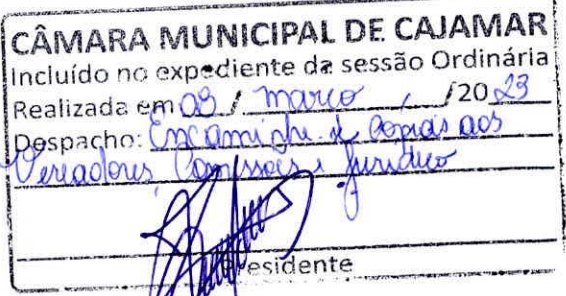 CÂMARA MUNICIPAL DE CAJAMAR
Incluído no expediente da sessão Ordinária
Realizada em 08 / março / 20 23
Despacho: Encaminhe-se Cópias aos
Vereadores, Comissões e Jurídico
Presidente